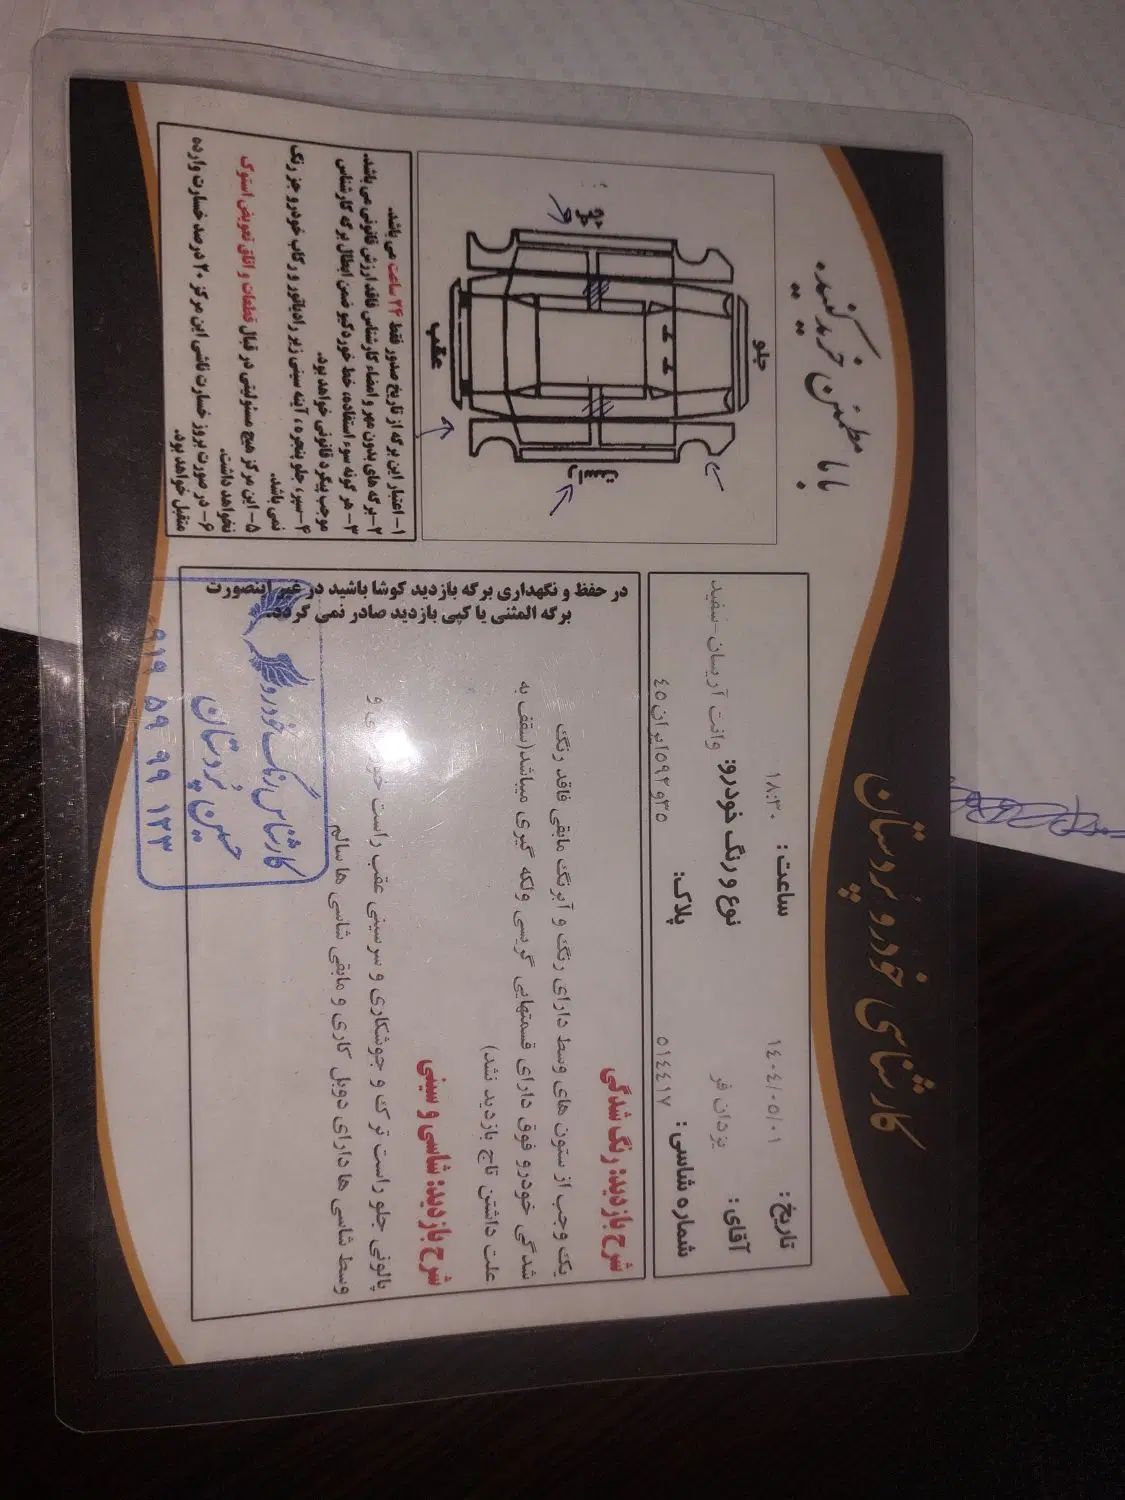 کارشناسی خودرو پردستان
با ما مطمئن خرید کنید.
تاریخ: ۱۴۰۴/۰۵/۰۱
ساعت: ۱۸:۳۰
آقای: یزدان فر
نوع و رنگ خودرو: وانت آریسان-سفید
شماره شاسی: ۵۱۴۴۱۷
پلاک:
جلو
راست
عقب
شرح بازدید: رنگ شدگی
یک وجب از ستون های وسط دارای رنگ و آبرنگ مابقی فاقد رنگ
شدگی خودرو فوق دارای قسمتهایی گریسی ولکه گیری میباشد(سقف به
علت داشتن تاج بازدید نشد)
شرح بازدید: شاسی و سینی
پالونی جلو راست ترک و جوشکاری و سرسینی عقب راست
وسط شاسی ها دارای دوبل کاری و مابقی شاسی ها سالم
در حفظ و نگهداری برگه بازدید کوشا باشید در غیر اینصورت
برگه المثنی یا کپی بازدید صادر نمی گردد.
۱- اعتبار این برگه از تاریخ صدور فقط ۲۴ ساعت می باشد.
۲-برگه های بدون مهر و امضاء کارشناس فاقد ارزش قانونی می باشد.
۳- هر گونه سوء استفاده، خط خوردگیو ضمن ابطال برگه کارشناس
موجب پیگرد قانونی خواهد بود.
۴-سپر، جلو پنجره، آینه سینی زیر رادیاتور و رکاب خودرو جز رنگ
نمی باشد.
۵- این مرکز هیچ مسئولیتی در قبال قطعات و اتاق تعویض استوک
نخواهد داشت.
۶- در صورت بروز خسارت ناشی این مرکز ۲۰ درصد خسارت وارده
متقبل خواهد بود.
کارشناس رنگ خودرو
حسین پردستان
۹۱۹ ۵۹ ۹۹ ۱۳۳